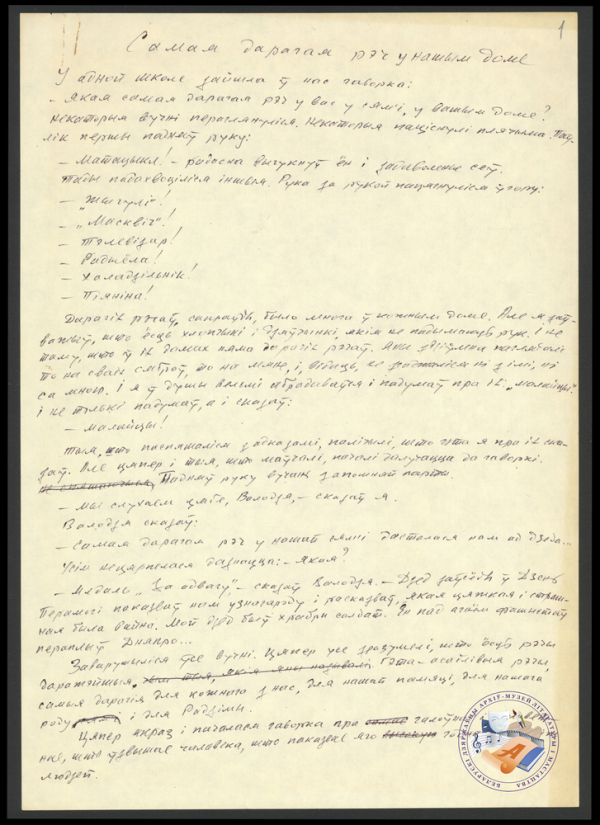 1
Самая дарагая рэч у нашым доме
У адной школе зайшла ў нас гаворка:
– Якая самая дарагая рэч у вас у сям'і, у вашым доме?
Некаторыя вучні пераглянуліся. Некаторыя паціснулі плячыма. Паў-
лік першы падняў руку:
– Матацыкл! – радасна выгукнуў ён і задаволена сеў.
Тады падахвоціліся іншыя. Рука за рукой пацягнуліся ўгору:
– „Жыгулі"!
– „Масквіч"!
– Тэлевізар!
– Радыёла!
– Халадзільнік!
– Піяніна!
Дарагіх рэчаў, сапраўды, было многа ў кожным доме. Але я заў-
важыў, што ёсць хлопчыкі і дзяўчынкі, якія не падымаюць рук. І не
таму, што ў іх дамах няма дарагіх рэчаў. Яны паглядалі
то на сваіх сяброў, то на мяне, і, відаць, не згаджаліся ні з імі, ні
са мною. І я ў душы вельмі абрадаваўся і падумаў пра іх: „малайцы".
І не толькі падумаў, а і сказаў:
– Малайцы!
Тыя, што паспяшаліся з адказамі, палічылі, што гэта я пра іх ска-
заў. Але цяпер і тыя, што маўчалі, пачалі далучацца да гаворкі.
Падняў руку вучань з апошняй парты.
– Мы слухаем цябе, Володзя, – сказаў я.
Валодзя сказаў:
– Самая дарагая рэч у нашай сям'і дасталася нам ад дзеда...
Усім нецярпелася дазнацца: – Якая?
– Медаль „За адвагу", – сказаў Володзя. – Дзед заўсёды ў Дзень
Перамогі паказваў нам узнагароду і расказваў, якая цяжкая і страш-
ная была вайна. Мой дзед быў храбры салдат. Ён пад агнём фашыстаў
пераплыў Дняпро...
Заварушыліся ўсе вучні. Цяпер усе зразумелі, што ёсць рэчы
даражэйшыя, чым тыя, якія яны называлі. Гэта – асаблівыя рэчы,
самыя дарагія для кожнага з нас, для нашай памяці, для нашага
роду і для Радзімы.
Цяпер якраз і пачалася гаворка пра самае
нае, што ўзвышае чалавека, што паказвае яго высокую
людзей.
БЕЛАРУСКІ ДЗЯРЖАЎНЫ АРХІЎ-МУЗЕЙ ЛІТАРАТУРЫ І МАСТАЦТВА